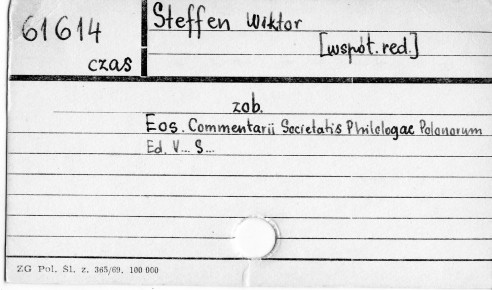 61614
czas
Steffen Wiktor
[współ. red.]
zob.
Eos. Commentarii Societatis Philologae Polonorum
Ed. V... S...
ZG Pol. Śl. z. 365/69. 100 000